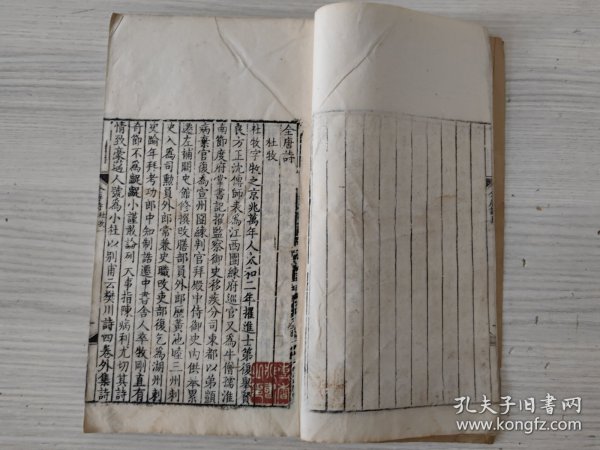 全唐詩
杜牧
杜牧字牧之京兆萬年人太和二年擢進士第復舉賢
良方正沈傳師表為江西團練府巡官又為牛僧孺淮
南節度府掌書記擢監察御史移疾分司東都以弟顗
病棄官復為宣州團練判官拜殿中侍御史內供奉累
遷左補闕史館修撰改膳部員外郎歷黃池睦三州刺
史入為司勳員外郎常兼史職改吏部復乞為湖州刺
史踰年拜考功郎中知制誥遷中書舍人卒牧剛直有
奇節不為齪齪小謹敢論列大事指陳病利尤切其詩
情致豪邁人號為小杜以別甫云樊川詩四卷外集詩
孔夫子旧书网
www.kongfz.com